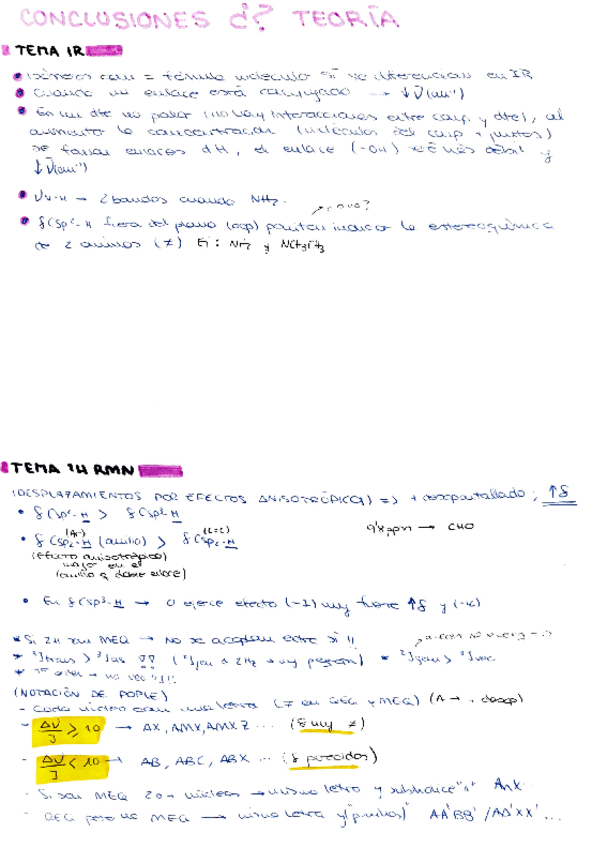 CONCLUSIONES d? TEORÍA
TEMA IR
Isómeros con = fórmula molecular sí se diferencian en IR
Cuando un enlace está conjugado → ↓ ν̄(cm⁻¹)
En un dte no polar (no hay interacciones entre comp. y dte), al
aumentar la concentración (moléculas del comp + juntas)
se forman enlaces dH, el enlace (-OH) será más débil y
↓ν̄(cm⁻¹)
νN-H → 2 bandas cuando NH₂.
δCsp²-H fuera del plano (oop) permiten indicar la estereoquímica
de 2 (≠) Ej: NH₂ y
TEMA 1H RMN
(DESPLAZAMIENTOS POR EFECTOS ANISOTRÓPICOS) => + desapantallado; ↑δ
δCsp²-H > δCsp³-H
(Ar) (C=C)
δCsp²-H (anillo) > δCsp²-H
9'8 ppm → CHO
(efecto anisotrópico)
mayor en el
(anillo q doble enlace)
En δCsp³-H → O ejerce efecto (-I) muy fuerte ↑δ y (-K)
* Si 2H son MEQ → No se acoplan entre sí !!
* ³Jtrans > ³Jcis !! (⁴Jmeta ≈ 2Hz → muy pequeña) * ²Jgem > ³Jvec
(NOTACIÓN DE POPLE)
- Cada núcleo con una letra (≠ en QEQ y MEQ) (A → + desap)
- Δν/J ≥ 10 → AX, AMX, AMXZ ... (δ muy ≠)
- Δν/J < 10 → AB, ABC, ABX ... (δ parecidos)
- Si son MEQ 2 o + núcleos → misma letra y subíndice "n" AnX
- QEQ pero no MEQ → misma letra y ("primas)' AA'BB' / AA'XX' ...